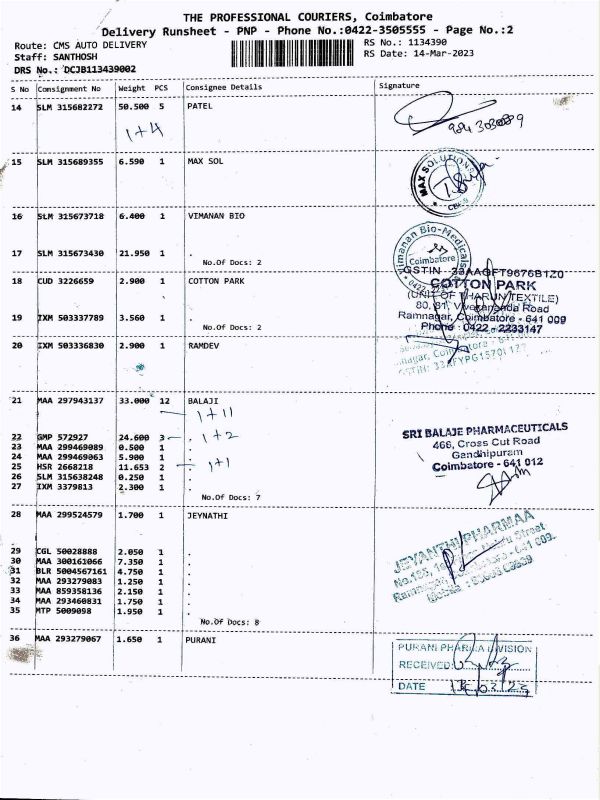 THE PROFESSIONAL COURIERS, Coimbatore
Delivery Runsheet - PNP - Phone No.:0422-3505555 - Page No.:2
Route: CMS AUTO DELIVERY
RS No.: 1134390
Staff: SANTHOSH
RS Date: 14-Mar-2023
DRS No.: DCJB113439002
S No Consignment No Weight PCS Consignee Details Signature
14 SLM 315682272 50.500 5 PATEL
1+4
15 SLM 315689355 6.590 1 MAX SOL
MAX SOLUTIONS
16 SLM 315673718 6.400 1 VIMANAN BIO
17 SLM 315673430 21.950 1 .
No.Of Docs: 2
Vimanan Bio-Medicals
Coimbatore
18 CUD 3226659 2.900 1 COTTON PARK
19 IXM 503337789 3.560 1 .
No.Of Docs: 2
GSTIN 33AAQFT9676B1Z0
COTTON PARK
(UNIT OF THARUN TEXTILE)
80, 81, Vivekananda Road
Ramnagar, Coimbatore - 641 009
Phone : 0422 - 2233147
20 IXM 503336830 2.900 1 RAMDEV
21 MAA 297943137 33.000 12 BALAJI
1+11
22 GMP 572927 24.600 3 .
1+2
23 MAA 299469089 0.500 1 .
24 MAA 299469063 5.900 1 .
25 HSR 2668218 11.653 2 .
1+1
26 SLM 315638248 0.250 1 .
27 IXM 3379813 2.300 1 .
No.Of Docs: 7
SRI BALAJE PHARMACEUTICALS
466, Cross Cut Road
Gandhipuram
Coimbatore - 641 012
28 MAA 299524579 1.700 1 JEYNATHI
29 CGL 50028888 2.050 1 .
30 MAA 300161066 7.350 1 .
31 BLR 5004567161 4.750 1 .
32 MAA 293279083 1.250 1 .
33 MAA 859358136 2.150 1 .
34 MAA 293460831 1.750 1 .
35 MTP 5009098 1.950 1 .
No.Of Docs: 8
JEYANTHI PHARMAA
36 MAA 293279067 1.650 1 PURANI
PURANI PHARMA DIVISION
RECEIVED:
DATE